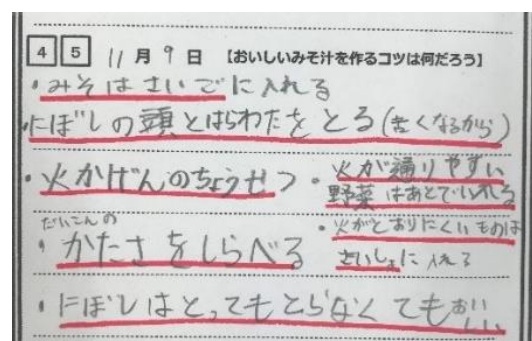 45 11月9日 【おいしいみそ汁を作るコツは何だろう】
・みそはさいごに入れる
にぼしの頭とはらわたをとる(苦くなるから)
・火かげんのちょうせつ
・火が通りやすい
野菜はあとでいれる
だいこんの
・かたさをしらべる
・火がとおりにくいものは
さいしょに入れる
・にぼしはとってもとらなくてもおいしい